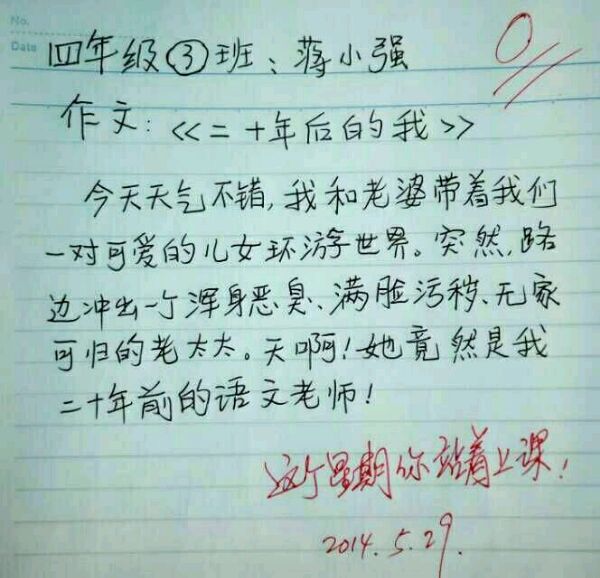 No.
Date
四年级③班:蒋小强
0
作文:《二十年后的我》
今天天气不错,我和老婆带着我们
一对可爱的儿女环游世界。突然,路
边冲出一个浑身恶臭、满脸污秽、无家
可归的老太太。天啊!她竟然是我
二十年前的语文老师!
这个星期你站着上课!
2014.5.29.